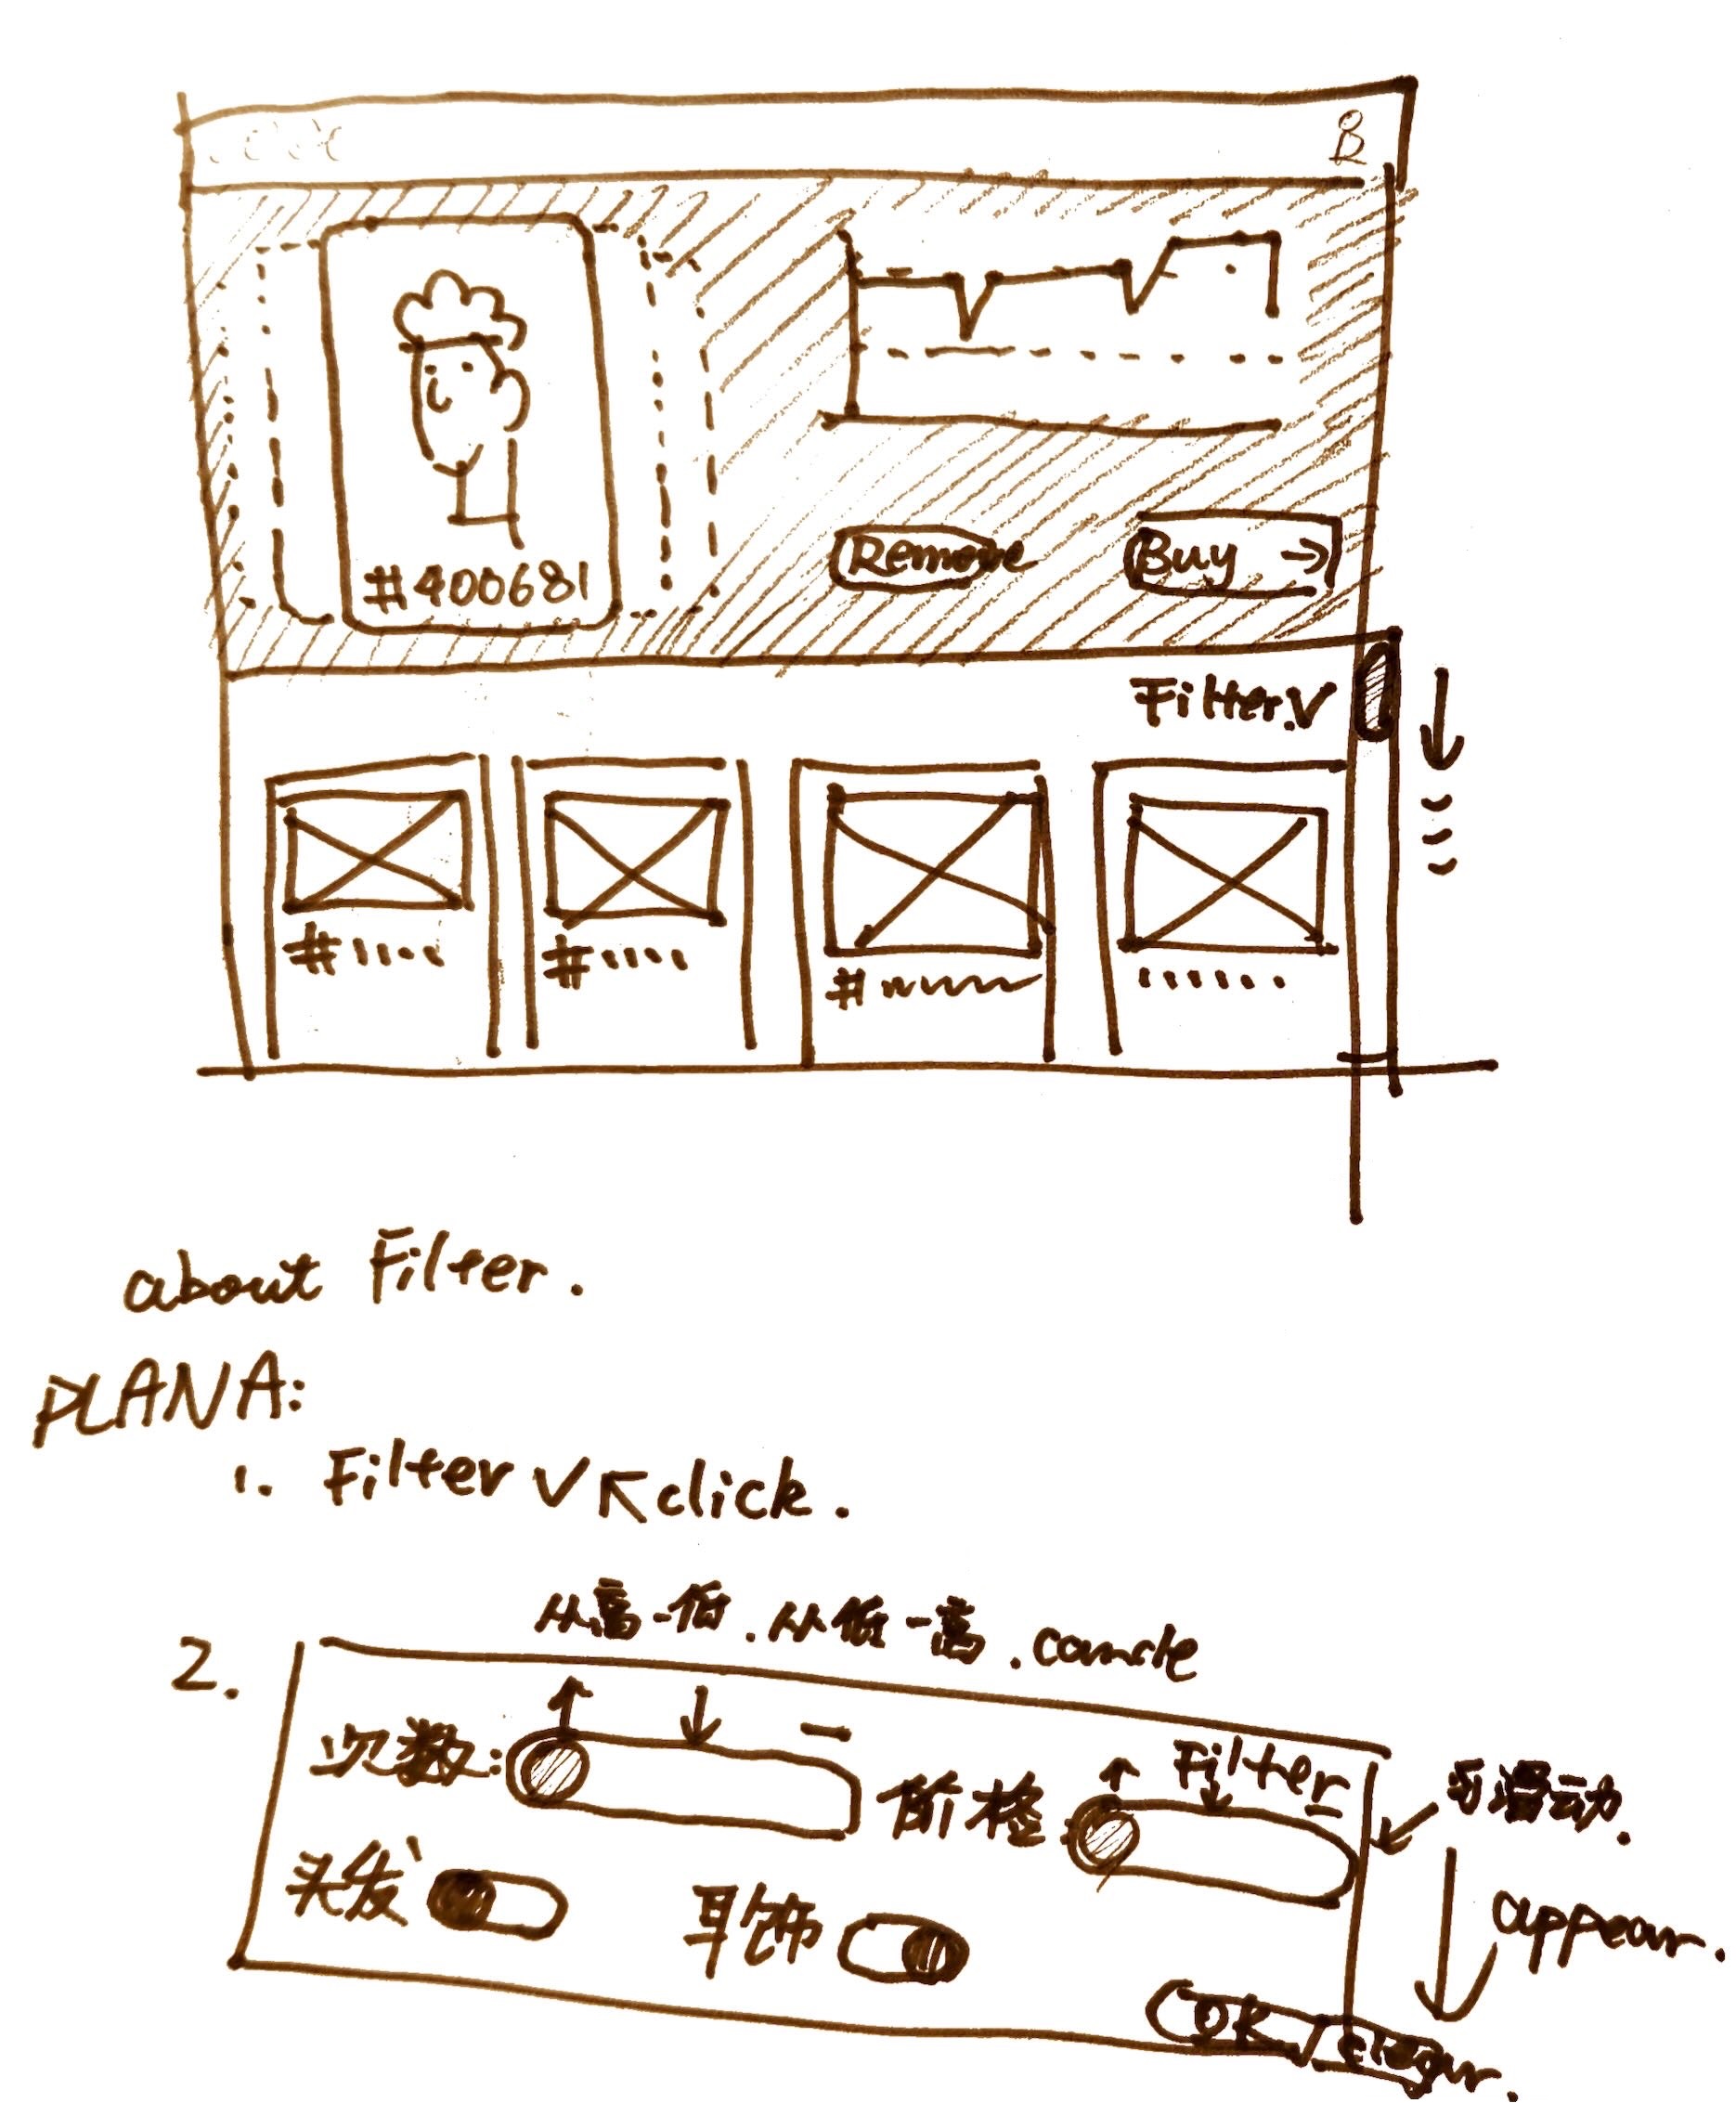 #400681
Remove
Buy →
Filter ∨
#
#
#
about Filter.
PLAN A:
1. Filter ∨ ↖ click.
从高-低.从低-高.cancle
2.
次数:
价格
Filter
可滑动.
头发
耳饰
appear.
OK / clear.